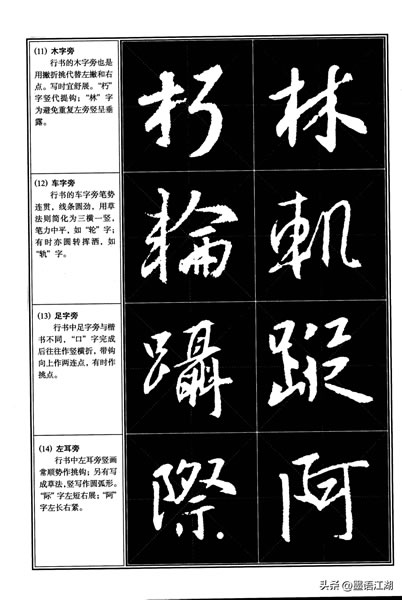 (11) 木字旁
行书的木字旁也是
用撇折挑代替左撇和右
点。写时宜舒展。“朽”
字竖代提钩；“林”字
为避免重复左旁竖呈垂
露。
朽 林
(12) 车字旁
行书的车字旁笔势
连贯，线条圆劲，用草
法则简化为三横一竖，
笔力中平，如“轮”字；
有时亦圆转挥洒，如
“轨”字。
輪 軌
(13) 足字旁
行书中足字旁与楷
书不同，“口”字完成
后往往作竖横折，带钩
向上作两连点，有时作
挑点。
躡 蹤
(14) 左耳旁
行书中左耳旁竖画
常顺势作挑钩；另有写
成草法，竖写作圆弧形。
“际”字左短右展；“阿”
字左长右紧。
際 阿
头条@墨语江湖